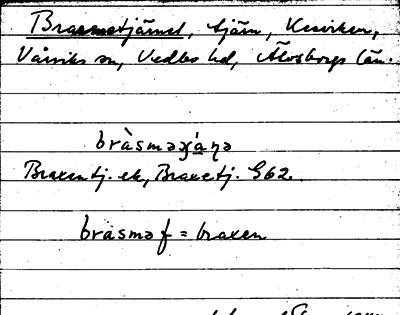 Brasmetjärnet, tjärn, Kesviken,
Vårviks sn, Vedbo hd, Älvsborgs län.
bràsməɣa̤ṇə
Braxentj. ek, Braxetj. G62.
bràsmə f = braxen